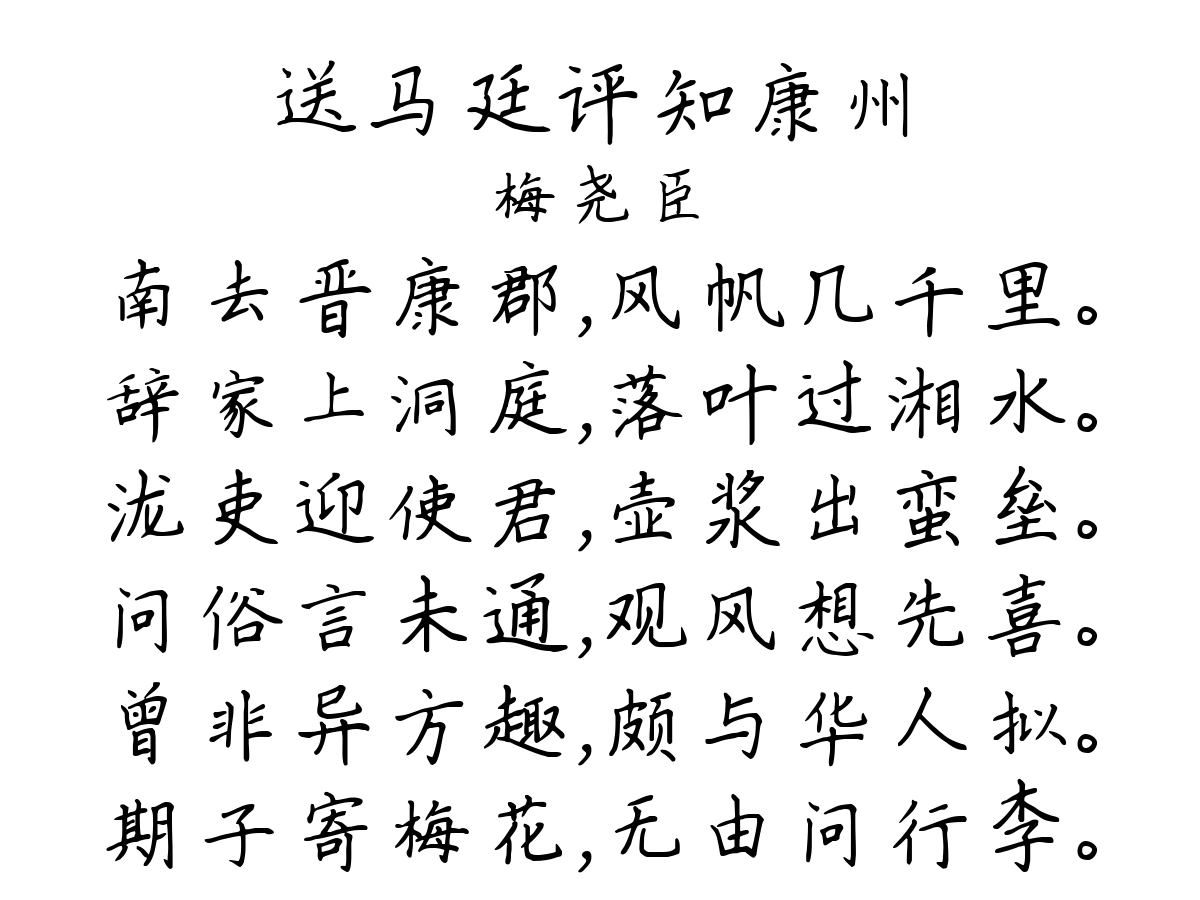 送马廷评知康州
梅尧臣
南去晋康郡,风帆几千里。
辞家上洞庭,落叶过湘水。
泷吏迎使君,壶浆出蛮垒。
问俗言未通,观风想先喜。
曾非异方趣,颇与华人拟。
期子寄梅花,无由问行李。